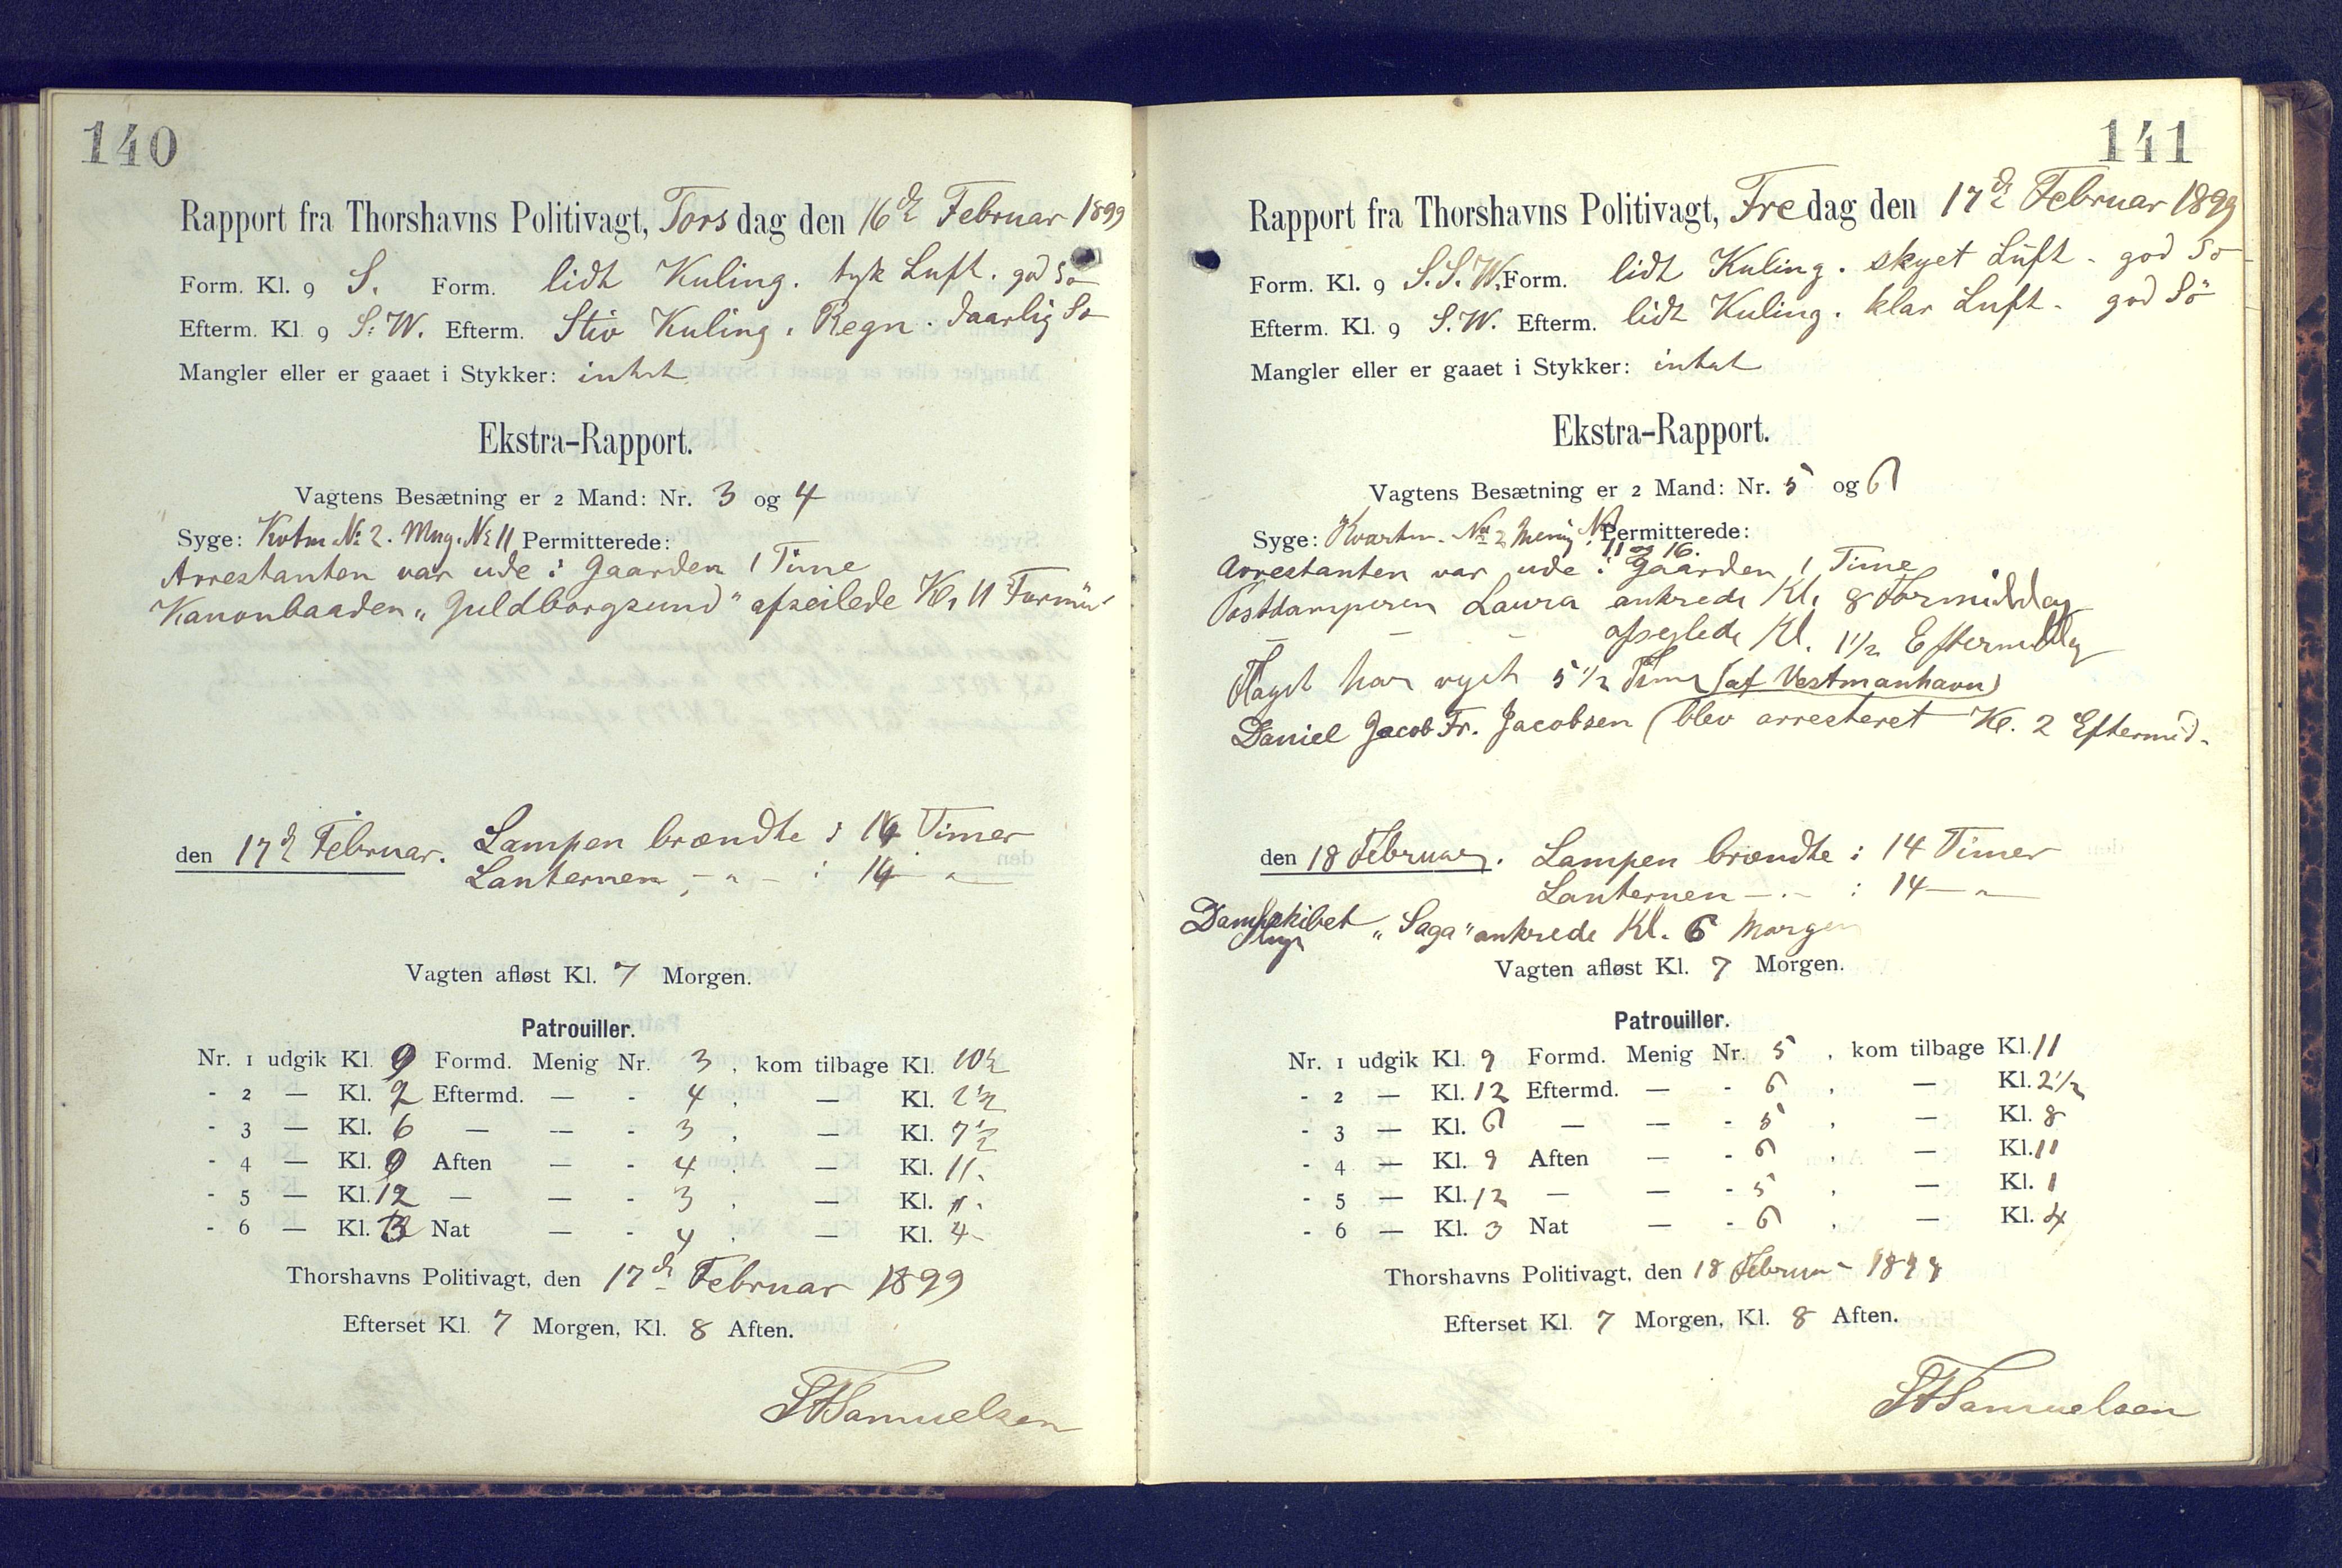 140
Rapport fra Thorshavns Politivagt, Torsdag den 16de Februar 1899
Form. Kl. 9 S. Form. lidt Kuling. tyk Luft. god Sö
Efterm. Kl. 9 S. W. Efterm. Stiv Kuling. Regn. daarlig Sö
Mangler eller er gaaet i Stykker: intet
Ekstra-Rapport.
Vagtens Besætning er 2 Mand: Nr. 3 og 4
Syge: Kvtm № 2. Mng. № 11 Permitterede:
Arrestanten var ude i Gaarden 1 Time
Kanonbaaden „Guldborgsund" afseilede Kl. 11 Formid
den 17de Februar. Lampen brændte : 14 Timer
Lanternen - „ - : 14 - „ -
Vagten afløst Kl. 7 Morgen.
Patrouiller.
Nr. 1 udgik Kl. 9 Formd. Menig Nr. 3, kom tilbage Kl. 10½
- 2 — Kl. 2 Eftermd. — - 4, — Kl. 2½
- 3 — Kl. 6 — — - 3, — Kl. 7½
- 4 — Kl. 9 Aften — - 4, — Kl. 11.
- 5 — Kl. 12 — — - 3, — Kl. 1.
- 6 — Kl. 3 Nat — - 4, — Kl. 4-
Thorshavns Politivagt, den 17de Februar 1899
Efterset Kl. 7 Morgen, Kl. 8 Aften.
Samuelsen
141
Rapport fra Thorshavns Politivagt, Fredag den 17de Februar 1899
Form. Kl. 9 S. S. W. Form. lidt Kuling. skyet Luft - god Sö
Efterm. Kl. 9 S. W. Efterm. lidt Kuling. klar Luft - god Sö
Mangler eller er gaaet i Stykker: intet
Ekstra-Rapport.
Vagtens Besætning er 2 Mand: Nr. 5 og 6
Syge: Kvartm. No 2 Menig No 11 og 16. Permitterede:
Arrestanten var ude i Gaarden 1 Time
Postdamperen Laura ankrede Kl. 8 Formiddag
— — — afseglede Kl. 1½ Eftermiddag
Flaget har vejet 5½ Time (af Vestmanhavn)
Daniel Jacob Fr. Jacobsen (blev arresteret Kl. 2 Eftermid-
den 18 Februar. Lampen brændte : 14 Timer
Lanternen - „ - : 14 — „
Dampskibet „Saga" ankrede Kl. 6 Morgen
Vagten afløst Kl. 7 Morgen.
Patrouiller.
Nr. 1 udgik Kl. 9 Formd. Menig Nr. 5, kom tilbage Kl. 11
- 2 — Kl. 12 Eftermd. — - 6, — Kl. 2½
- 3 — Kl. 6 — — - 5, — Kl. 8
- 4 — Kl. 9 Aften — - 6, — Kl. 11
- 5 — Kl. 12 — — - 5, — Kl. 1
- 6 — Kl. 3 Nat — - 6, — Kl. 4
Thorshavns Politivagt, den 18 Februar 1899
Efterset Kl. 7 Morgen, Kl. 8 Aften.
Samuelsen